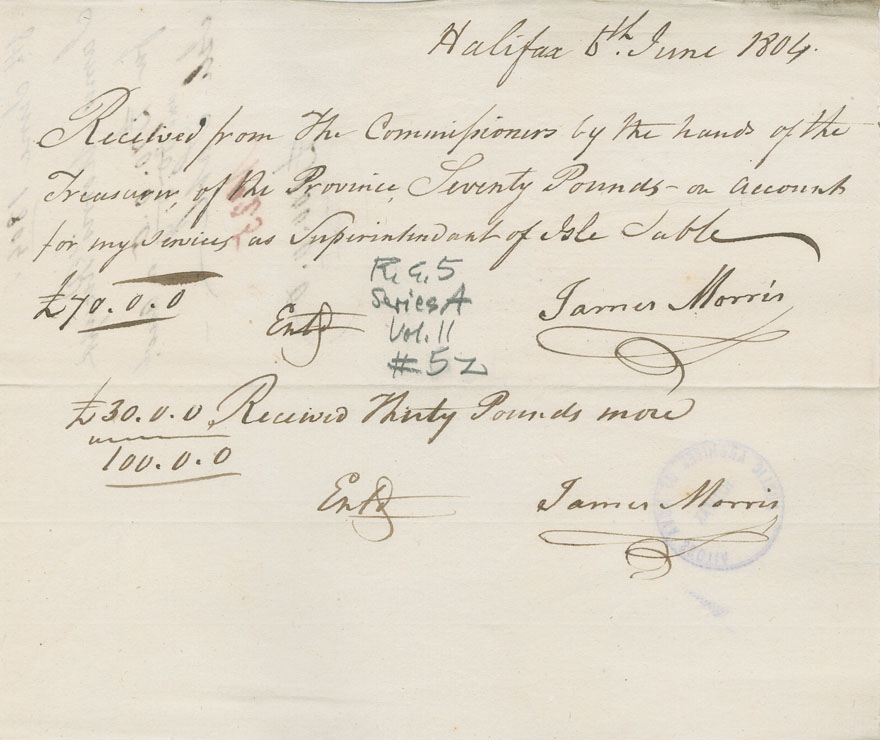 Halifax 6th. June 1804.
Received from The Commissioners by the hands of the
Treasurer, of the Province, Seventy Pounds - on account
for my services, as Superintendant of Isle Sable
£70.0.0
Entd
James Morris
R.G.5
Series A
Vol. 11
#52
£30.0.0 Received Thirty Pounds more
100.0.0
Entd
James Morris